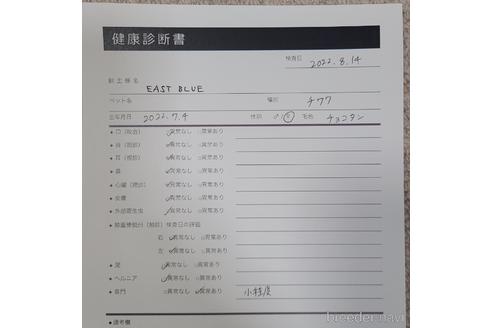 健康診断書
検査日 2022.8.14
飼主様名 EAST BLUE
ペット名 種別 チワワ
生年月日 2022.7.4 性別 ♂ ♀ 毛色 チョコタン
●口(咬合) ☑異常なし □異常あり
●目(視診) ☑異常なし □異常あり
●耳(視診) ☑異常なし □異常あり
●鼻 ☑異常なし □異常あり
●心臓(聴診) ☑異常なし □異常あり
●皮膚 ☑異常なし □異常あり
●外部寄生虫 ☑異常なし □異常あり
●膝蓋骨脱臼(触診) 検査日の評価
右 ☑異常なし □異常あり
左 ☑異常なし □異常あり
●足 ☑異常なし □異常あり
●ヘルニア ☑異常なし □異常あり
●泉門 □異常なし ☑異常あり 小程度
●備考欄
breeder-navi